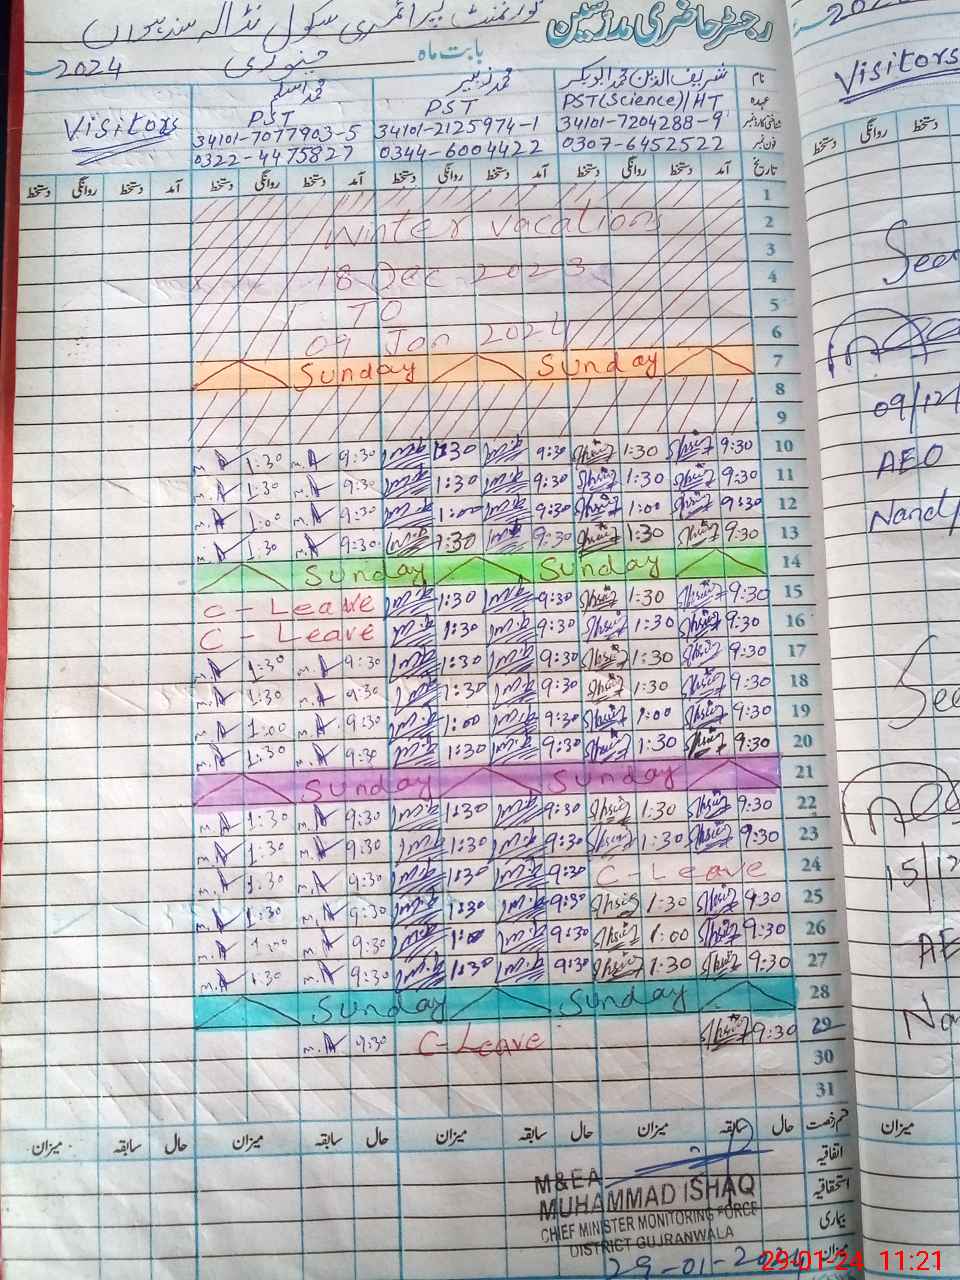 رجسٹر حاضری مدرسین
گورنمنٹ پرائمری سکول نڈالہ سندہواں
بابت ماہ جنوری 2024
نام شریف الدین محمد ابوبکر محمد زبیر محمد اسلم
عہدہ PST(Science)/HT PST PST Visitors
شناختی کارڈ نمبر 34101-7204288-9 34101-2125974-1 34101-7077903-5
فون نمبر 0307-6452522 0344-6004422 0322-4475827
تاریخ آمد دستخط روانگی دستخط آمد دستخط روانگی دستخط آمد دستخط روانگی دستخط آمد دستخط روانگی دستخط
1
2 Winter vacations
3
4 18 Dec 2023
5 TO
6 09 Jan 2024
7 Sunday Sunday
8
9
10 9:30 1:30 9:30 1:30 9:30 M.A 1:30 M.A
11 9:30 1:30 9:30 1:30 9:30 M.A 1:30 M.A
12 9:30 1:00 9:30 1:00 9:30 M.A 1:00 M.A
13 9:30 1:30 9:30 1:30 9:30 M.A 1:30 M.A
14 Sunday Sunday
15 9:30 1:30 9:30 1:30 C-Leave
16 9:30 1:30 9:30 1:30 C-Leave
17 9:30 1:30 9:30 1:30 9:30 M.A 1:30 M.A
18 9:30 1:30 9:30 1:30 9:30 M.A 1:30 M.A
19 9:30 1:00 9:30 1:00 9:30 M.A 1:00 M.A
20 9:30 1:30 9:30 1:30 9:30 M.A 1:30 M.A
21 Sunday Sunday
22 9:30 1:30 9:30 1:30 9:30 M.A 1:30 M.A
23 9:30 1:30 9:30 1:30 9:30 M.A 1:30 M.A
24 C-Leave 9:30 1:30 9:30 M.A 1:30 M.A
25 9:30 1:30 9:30 1:30 9:30 M.A 1:30 M.A
26 9:30 1:00 9:30 1:00 9:30 M.A 1:00 M.A
27 9:30 1:30 9:30 1:30 9:30 M.A 1:30 M.A
28 Sunday Sunday
29 9:30 C-Leave 9:30 M.A
30
31
قسم رخصت حال سابقہ میزان حال سابقہ میزان حال سابقہ میزان حال سابقہ میزان
اتفاقیہ
استحقاقیہ
بیماری
میزان
M&EA
MUHAMMAD ISHAQ
CHIEF MINISTER MONITORING FORCE
DISTRICT GUJRANWALA
29-01-2024
29-01-24 11:21
Visitors
دستخط روانگی دستخط
09/12/
AEO
15/12
میزان